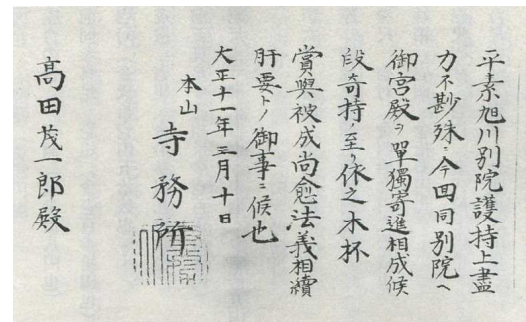 平素旭川別院護持上盡
力不尠殊ニ今回同別院へ
御宮殿ヲ單獨寄進相成候
段奇持ノ至リ依之木杯
賞與被成尚愈法義相續
肝要トノ御事ニ候也
大正十一年三月十日
本山
寺務所
高田茂一郎殿